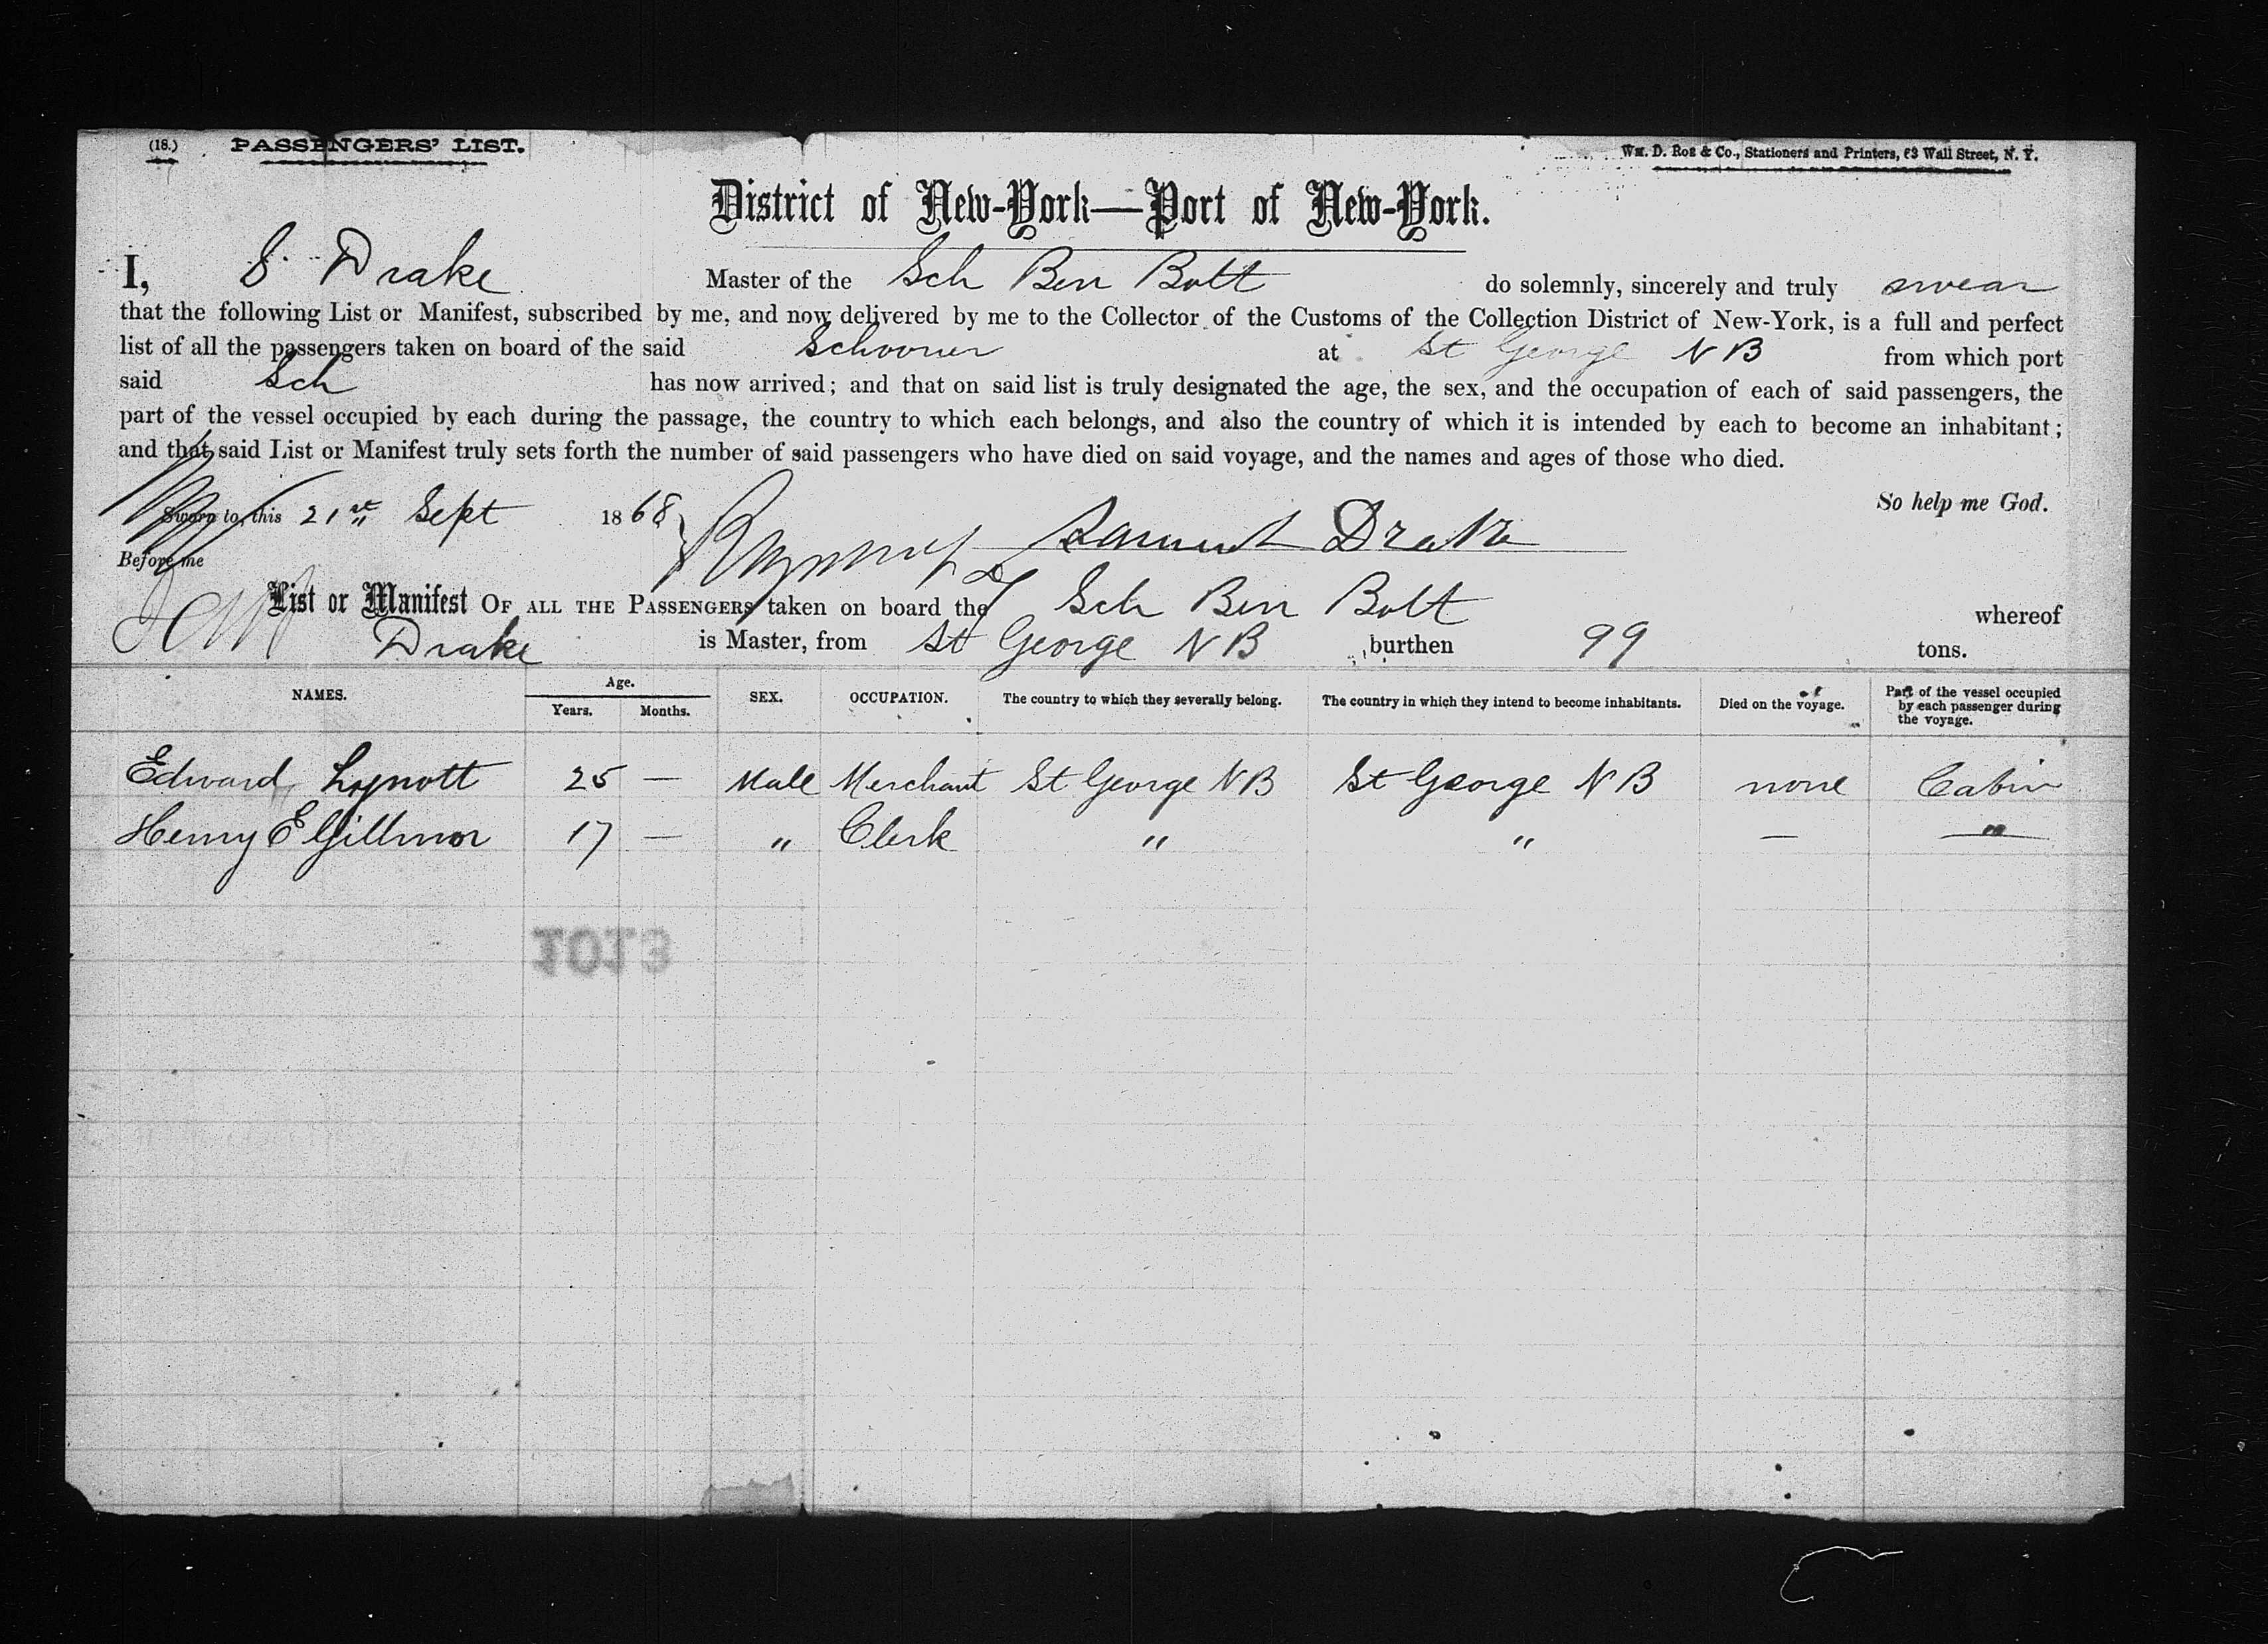 (18.) PASSENGERS' LIST. Wm. D. Roe & Co., Stationers and Printers, 63 Wall Street, N. Y.
District of New-York—Port of New-York.
I, S. Drake Master of the Sch Ben Bolt do solemnly, sincerely and truly swear
that the following List or Manifest, subscribed by me, and now delivered by me to the Collector of the Customs of the Collection District of New-York, is a full and perfect
list of all the passengers taken on board of the said Schooner at St George N B from which port
said Sch has now arrived; and that on said list is truly designated the age, the sex, and the occupation of each of said passengers, the
part of the vessel occupied by each during the passage, the country to which each belongs, and also the country of which it is intended by each to become an inhabitant;
and that said List or Manifest truly sets forth the number of said passengers who have died on said voyage, and the names and ages of those who died.
So help me God.
Sworn to, this 21st Sept 1868 Samuel Drake
Before me
List or Manifest OF ALL THE PASSENGERS taken on board the Sch Ben Bolt whereof
Drake is Master, from St George N B burthen 99 tons.
NAMES. Age. Years. Months. SEX. OCCUPATION. The country to which they severally belong. The country in which they intend to become inhabitants. Died on the voyage. Part of the vessel occupied by each passenger during the voyage.
Edward Lynott 25 — Male Merchant St George N B St George N B none Cabin
Henry E Gillmor 17 — " Clerk " " — "
1013